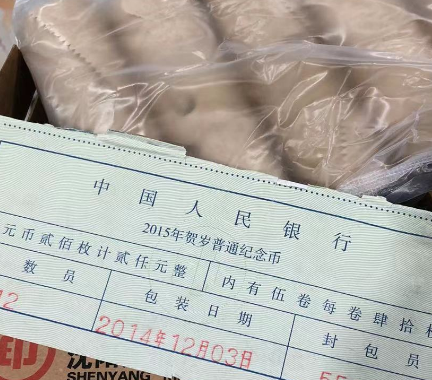 中国人民银行
2015年贺岁普通纪念币
元币贰佰枚计贰仟元整
内有伍卷每卷肆拾枚
数员
包装日期
封包员
12
2014年12月03日
印
沈阳
SHENYANG